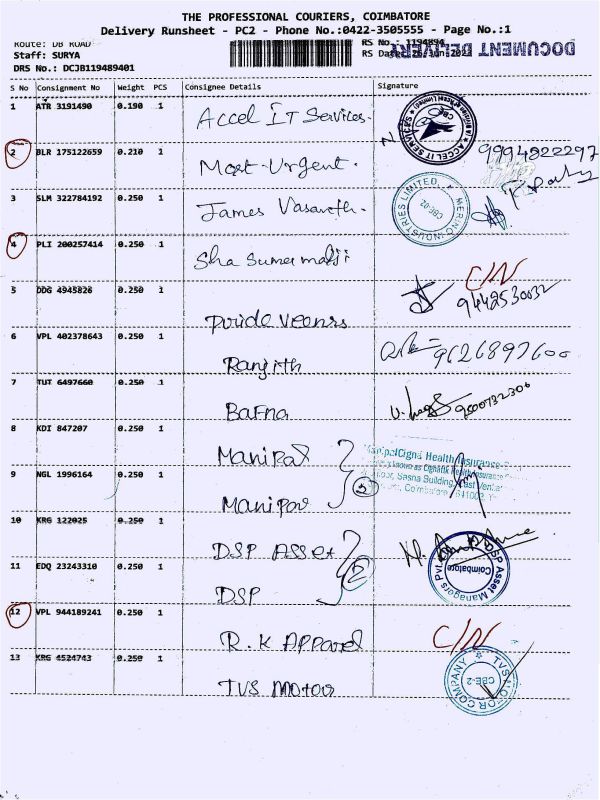 THE PROFESSIONAL COURIERS, COIMBATORE
Delivery Runsheet - PC2 - Phone No.:0422-3505555 - Page No.:1
Route: DB ROAD
RS No.: 1194894
DOCUMENT DELIVERY
Staff: SURYA
RS Date: 26-Jun-2023
DRS No.: DCJB119489401
S No Consignment No Weight PCS Consignee Details Signature
1 ATR 3191490 0.190 1 Accel IT Services.
ACCEL IT SERVICES
2 BLR 175122659 0.210 1 Most-Urgent.
9994822297
3 SLM 322784192 0.250 1 James Vasanth.
INDUSTRIES LIMITED
CBE-02
4 PLI 200257414 0.250 1 Sha Sumermalji
C/N
5 DDG 4945826 0.250 1 Pride Venns
9442530032
6 VPL 402378643 0.250 1 Ranjith
9626897600
7 TUT 6497660 0.250 1 Bafna
9600732306
8 KDI 847207 0.250 1 Manipal
ManipalCigna Health Insurance
known as CignaTTK Health Insurance
Sasna Building, East
Coimbatore 641002
9 NGL 1996164 0.250 1 Manipal
2
10 KRG 122025 0.250 1 DSP Asset
11 EDQ 23243310 0.250 1 DSP
2
DSP Asset Managers Pvt
Coimbatore
12 VPL 944189241 0.250 1 R.K Apparel
C/N
13 KRG 4524743 0.250 1 TVS Motor
TVS MOTOR COMPANY
CBE-2